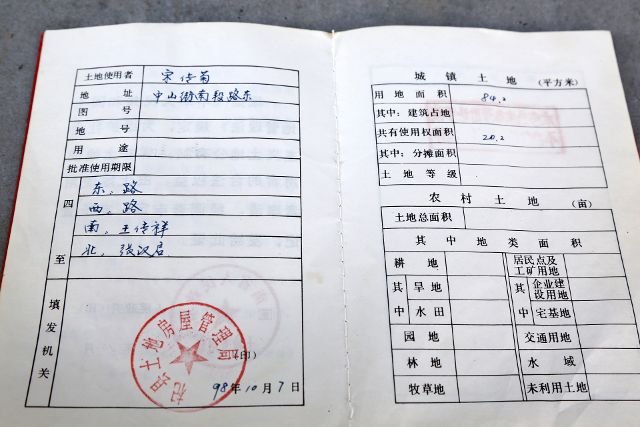 土地使用者 宋传菊
地 址 中山街南段路东
图 号
地 号
用 途
批准使用期限
四 至
东，路
西，路
南，王传祥
北，张汉启
填发机关
杞县土地房屋管理局
（印）
98年10月7日
城 镇 土 地 （平方米）
用 地 面 积 84.2
其中：建筑占地
共有使用权面积 20.2
其中：分摊面积
土 地 等 级
农 村 土 地 （亩）
土地总面积
其 中 地 类 面 积
耕 地 居民点及工矿用地
其中 旱 地 其中 企业建设用地
水 田 宅基地
园 地 交通用地
林 地 水 域
牧草地 未利用土地